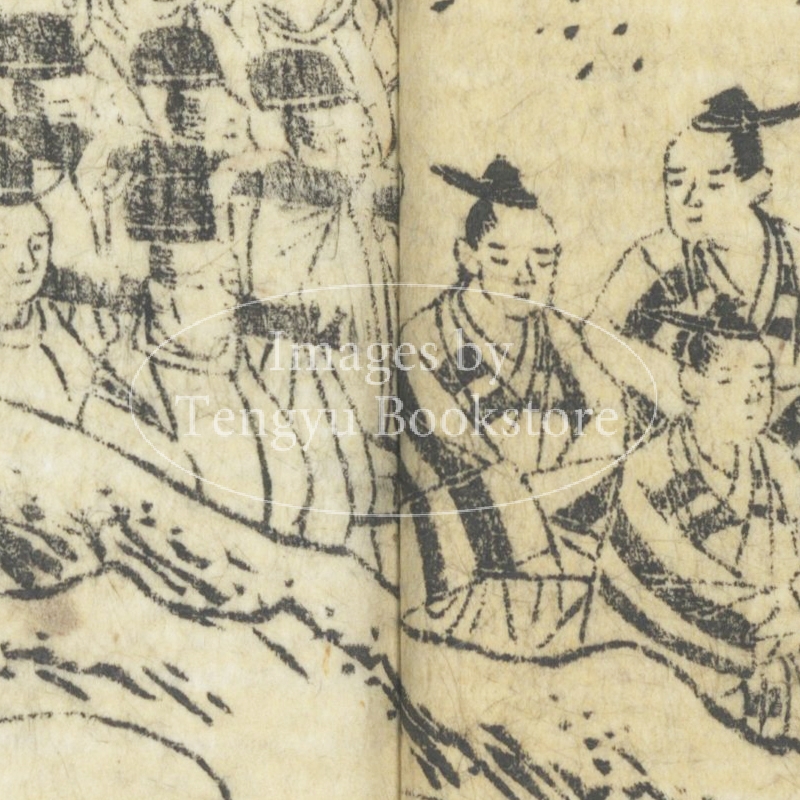 Images by
Tengyu Bookstore